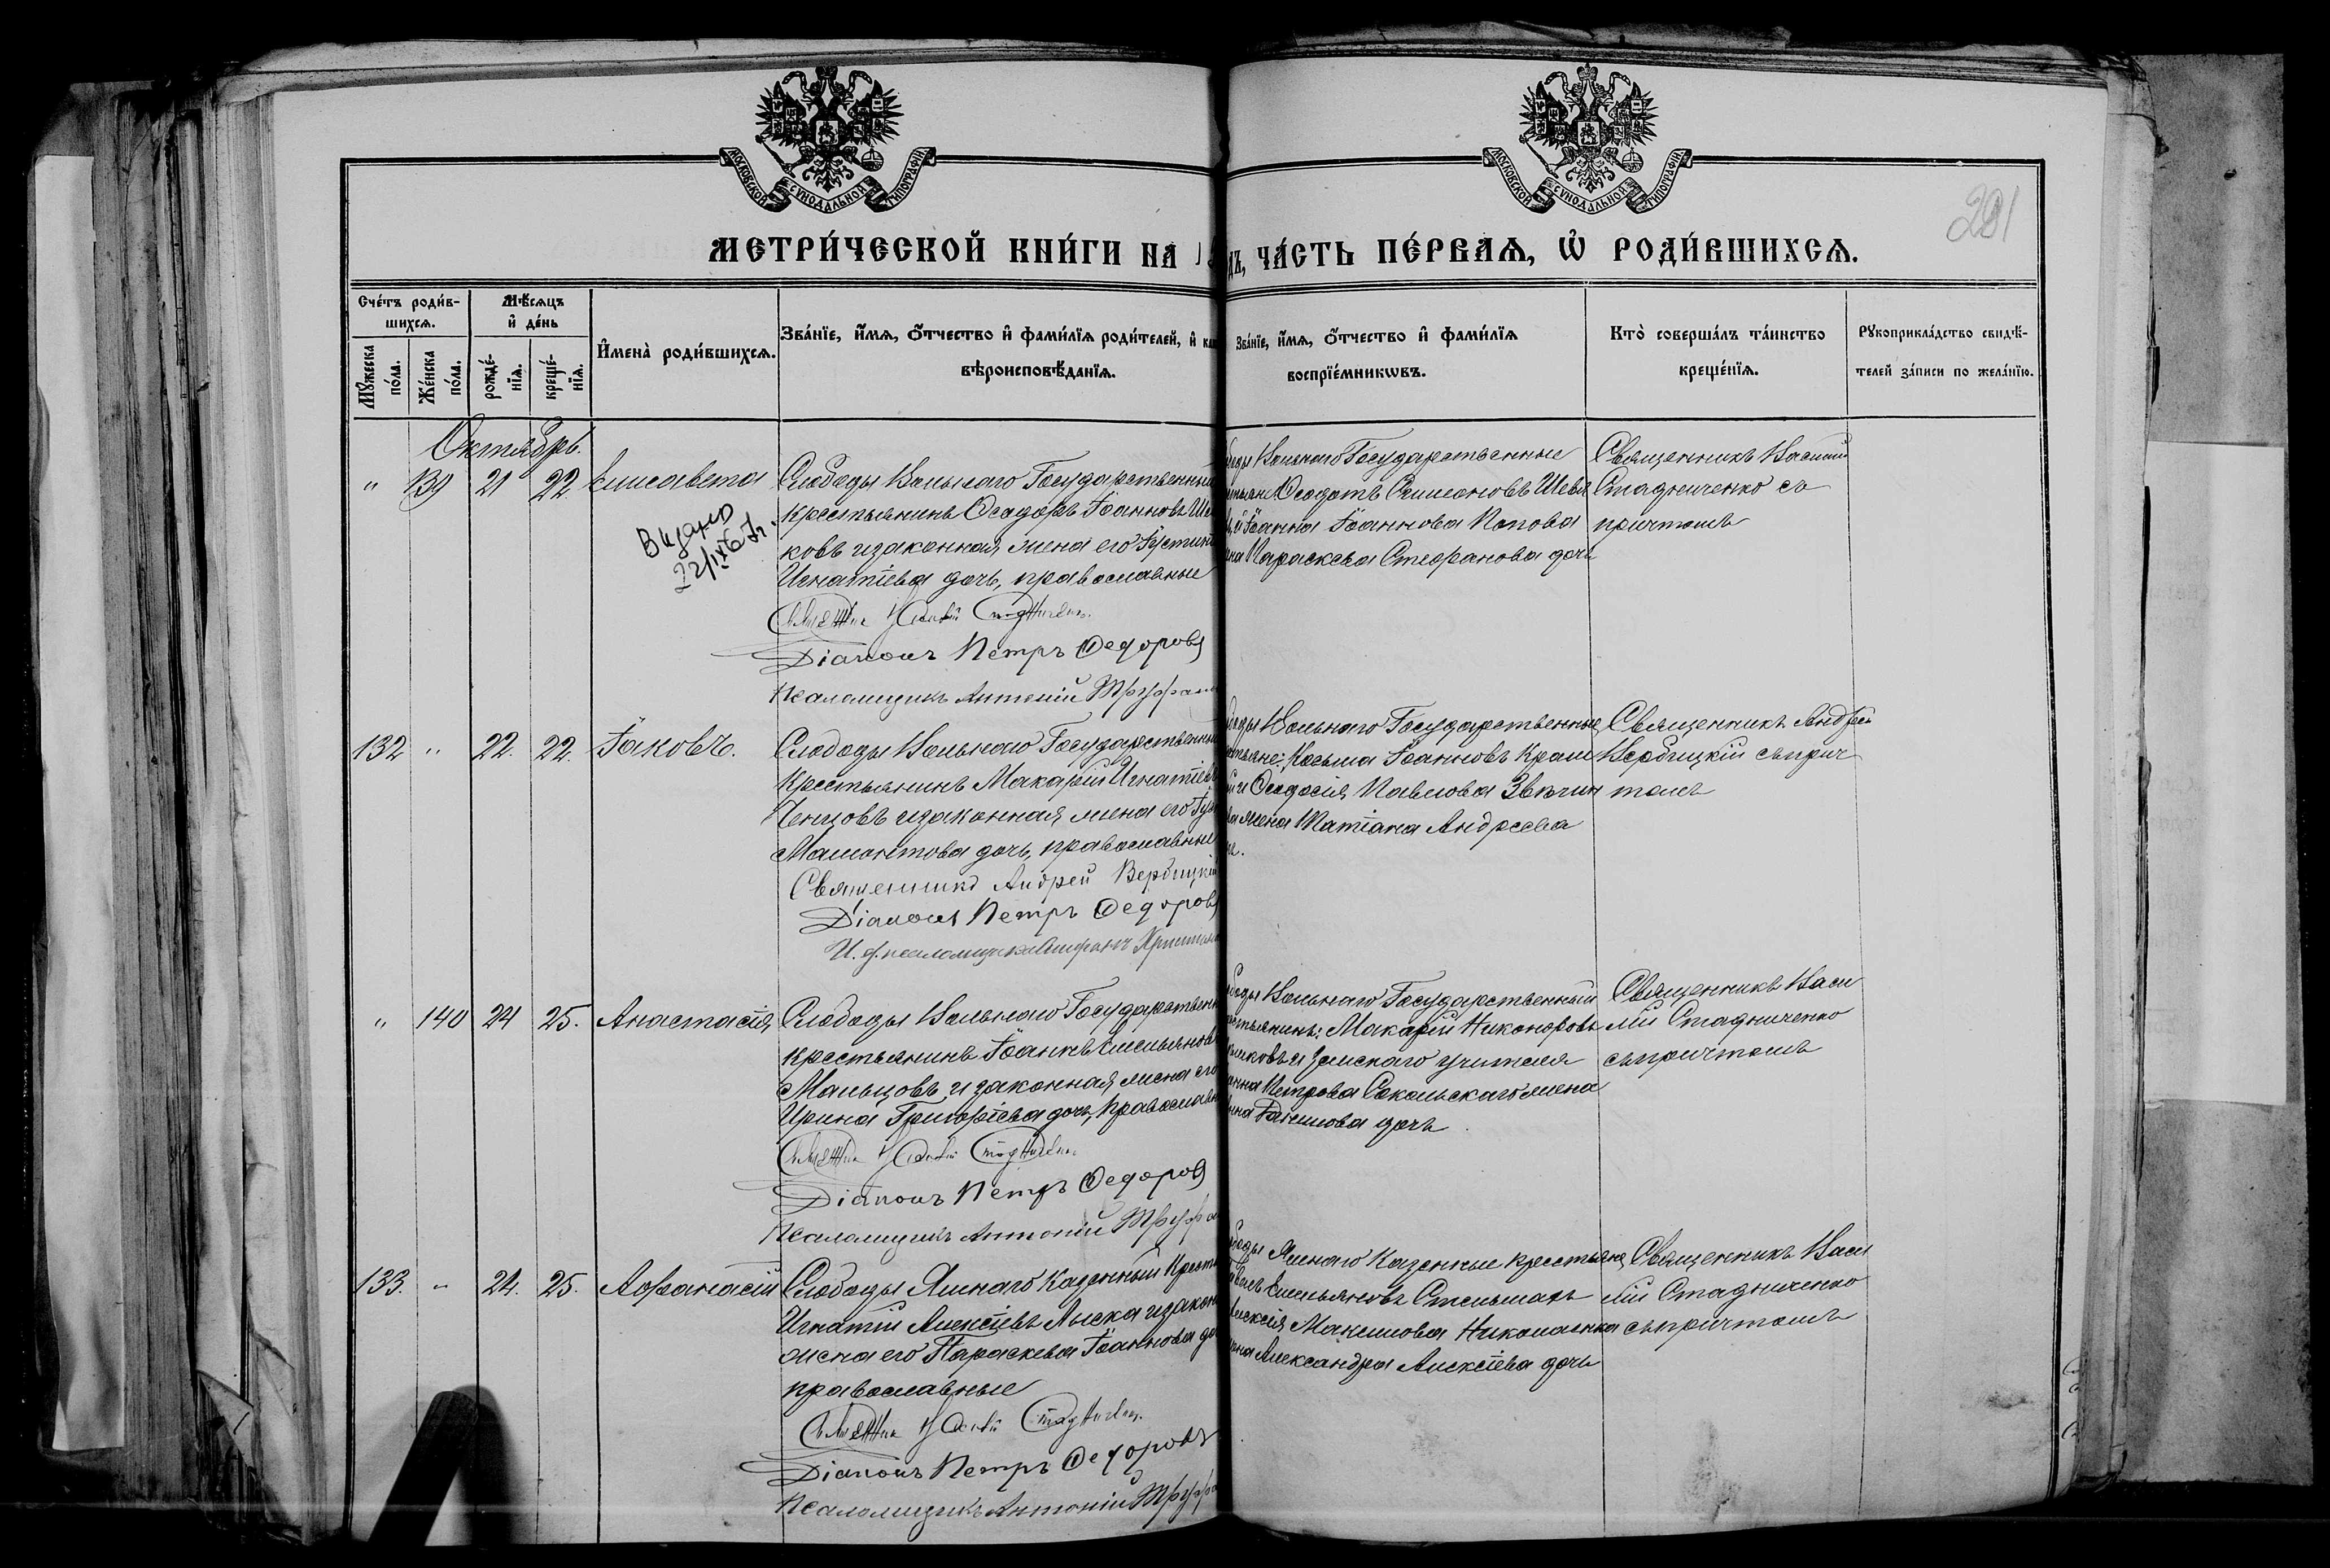 МОСКОВСКОЙ СУНОДАЛЬНОЙ ТИПОГРАФІИ
МОСКОВСКОЙ СУНОДАЛЬНОЙ ТИПОГРАФІИ
201
МЕТРИ́ЧЕСКОЙ КНИ́ГИ НА 1
ЧА́СТЬ ПЕ́РВАЯ, Ѡ РОДИ́ВШИХСЯ.
Сче́тъ роди́в-
шихся.
Мѣ́сяцъ
и де́нь
Му́жеска по́ла.
Же́нска по́ла.
рожде́-
нїя.
креще́-
нїя.
Имена̀ роди́вшихся.
Зва́нїе, и́мя, о́тчество и фами́лїя роди́телей, и
вѣроисповѣ́данїя.
Зва́нїе, и́мя, о́тчество и фами́лїя
воспрїе́мникѡвъ.
Кто̀ соверша́лъ та́инство
креще́нїя.
Рукоприкла́дство свидѣ́-
телей за́писи по жела́нїю.
Октябрь.
" 139 21 22 Елисавета
Слободы Вольнаго Государственный
крестьянинъ Ѳеодоръ Іоанновъ
ковъ и законная жена его Іустина
Игнатіева дочь, православные
Видано
22/IX67г.
Василій Стадниченко
Діаконъ Петръ Ѳедоровъ
Псаломщикъ Антоній
Вольнаго Государственные
Ѳеодотъ Симеоновъ
Іоанна Іоаннова Попова
Параскева Стефанова дочь
Священникъ Василій
Стадниченко съ
причтомъ
132 " 22. 22. Іаковъ.
Слободы Вольнаго Государственный
Крестьянинъ Макарій Игнатіевъ
Ченцовъ и законная жена его
Мамонтова дочь, православные
Священникъ Андрей Вербицкій
Діаконъ Петръ Ѳедоровъ
И. д. псаломщика
Вольнаго Государственные
Козьма Іоанновъ
и Ѳеодосія Павлова
жена Татіана Андреева
Священникъ Андрей
Вербицкій съ прич
томъ
" 140 24 25. Анастасія
Слободы Вольнаго Государственный
крестьянинъ Іоаннъ Емельяновъ
Мальцовъ и законная жена его
Ирина Григоріева дочь, православные
Василій Стадниченко
Діаконъ Петръ Ѳедоровъ
Псаломщикъ Антоній
Вольнаго Государственный
Макарій Никоноровъ
и земскаго учителя
Петрова Сокольскаго жена
Данилова дочь
Священникъ Васи
лій Стадниченко
съ причтомъ
133. " 24. 25. Аѳанасій
Слободы Ямнаго Казенный
Игнатій Алексіевъ Лыска и законная
жена его Параскева Іоаннова
православные
Василій Стадниченко
Діаконъ Петръ Ѳедоровъ
Псаломщикъ Антоній
Ямнаго Казенные крестьяне
Емельяновъ Стельмахъ
Алексія Максимова Николаенка
Александра Алексіева дочь
Священникъ Васи
лій Стадниченко
съ причтомъ